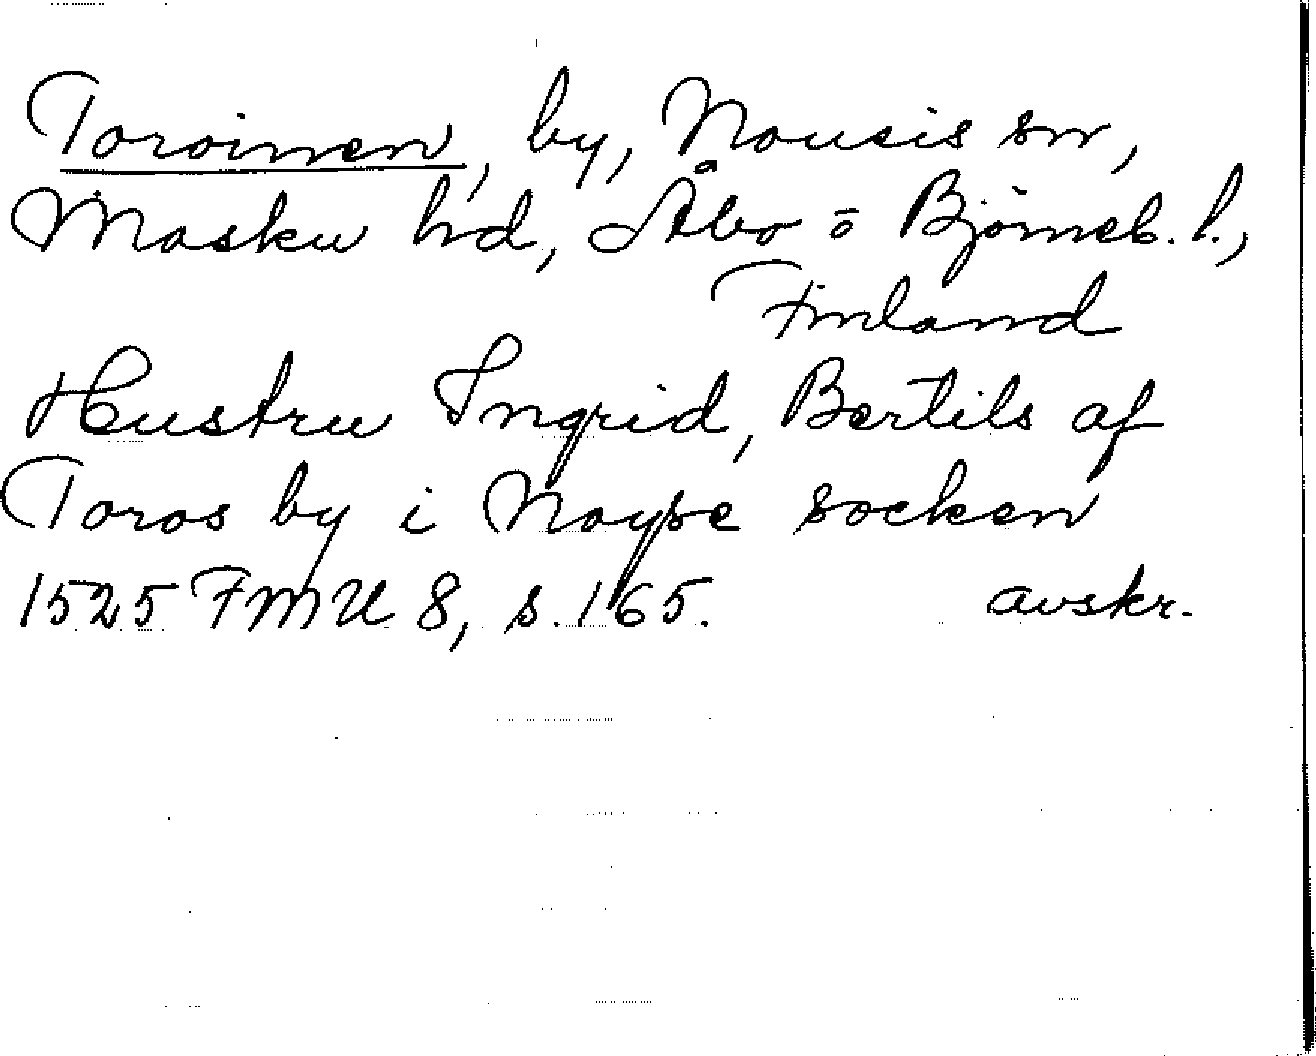 Toroinen, by, Nousis sn,
Masku hd, Åbo o Björneb. l.,
Finland
Hustru Ingrid, Bertils af
Toros by i Noyse socken
1525 FMU 8, s. 165. avskr.